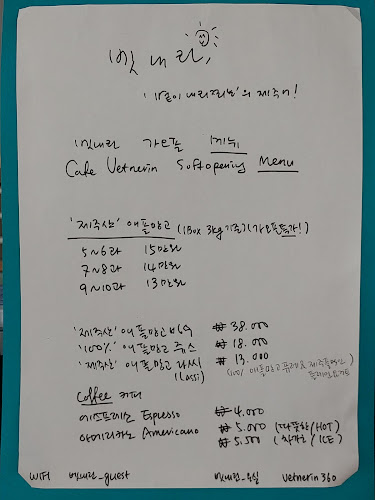 벳내린,
'볕이 내리쬐는'의 제주어!
벳내린 가오픈 메뉴
Cafe Vetnerin Softopening Menu
'제주산' 애플망고 (1Box 3kg 기준/가오픈특가!)
5~6과 15만원
7~8과 14만원
9~10과 13만원
'제주산' 애플망고 빙수 ₩ 38.000
'100%' 애플망고 쥬스 ₩ 18.000
'제주산' 애플망고 라씨 ₩ 13.000
(Lassi) (100% 애플망고퓨레 & 제주목장
플레인요거트
Coffee 커피
에스프레소 Espresso ₩ 4.000
아메리카노 Americano ₩ 5.000 (따뜻한/HOT)
₩ 5.500 (차가운/ICE)
WIFI 벳내린_guest 벳내린_수실 Vetnerin360